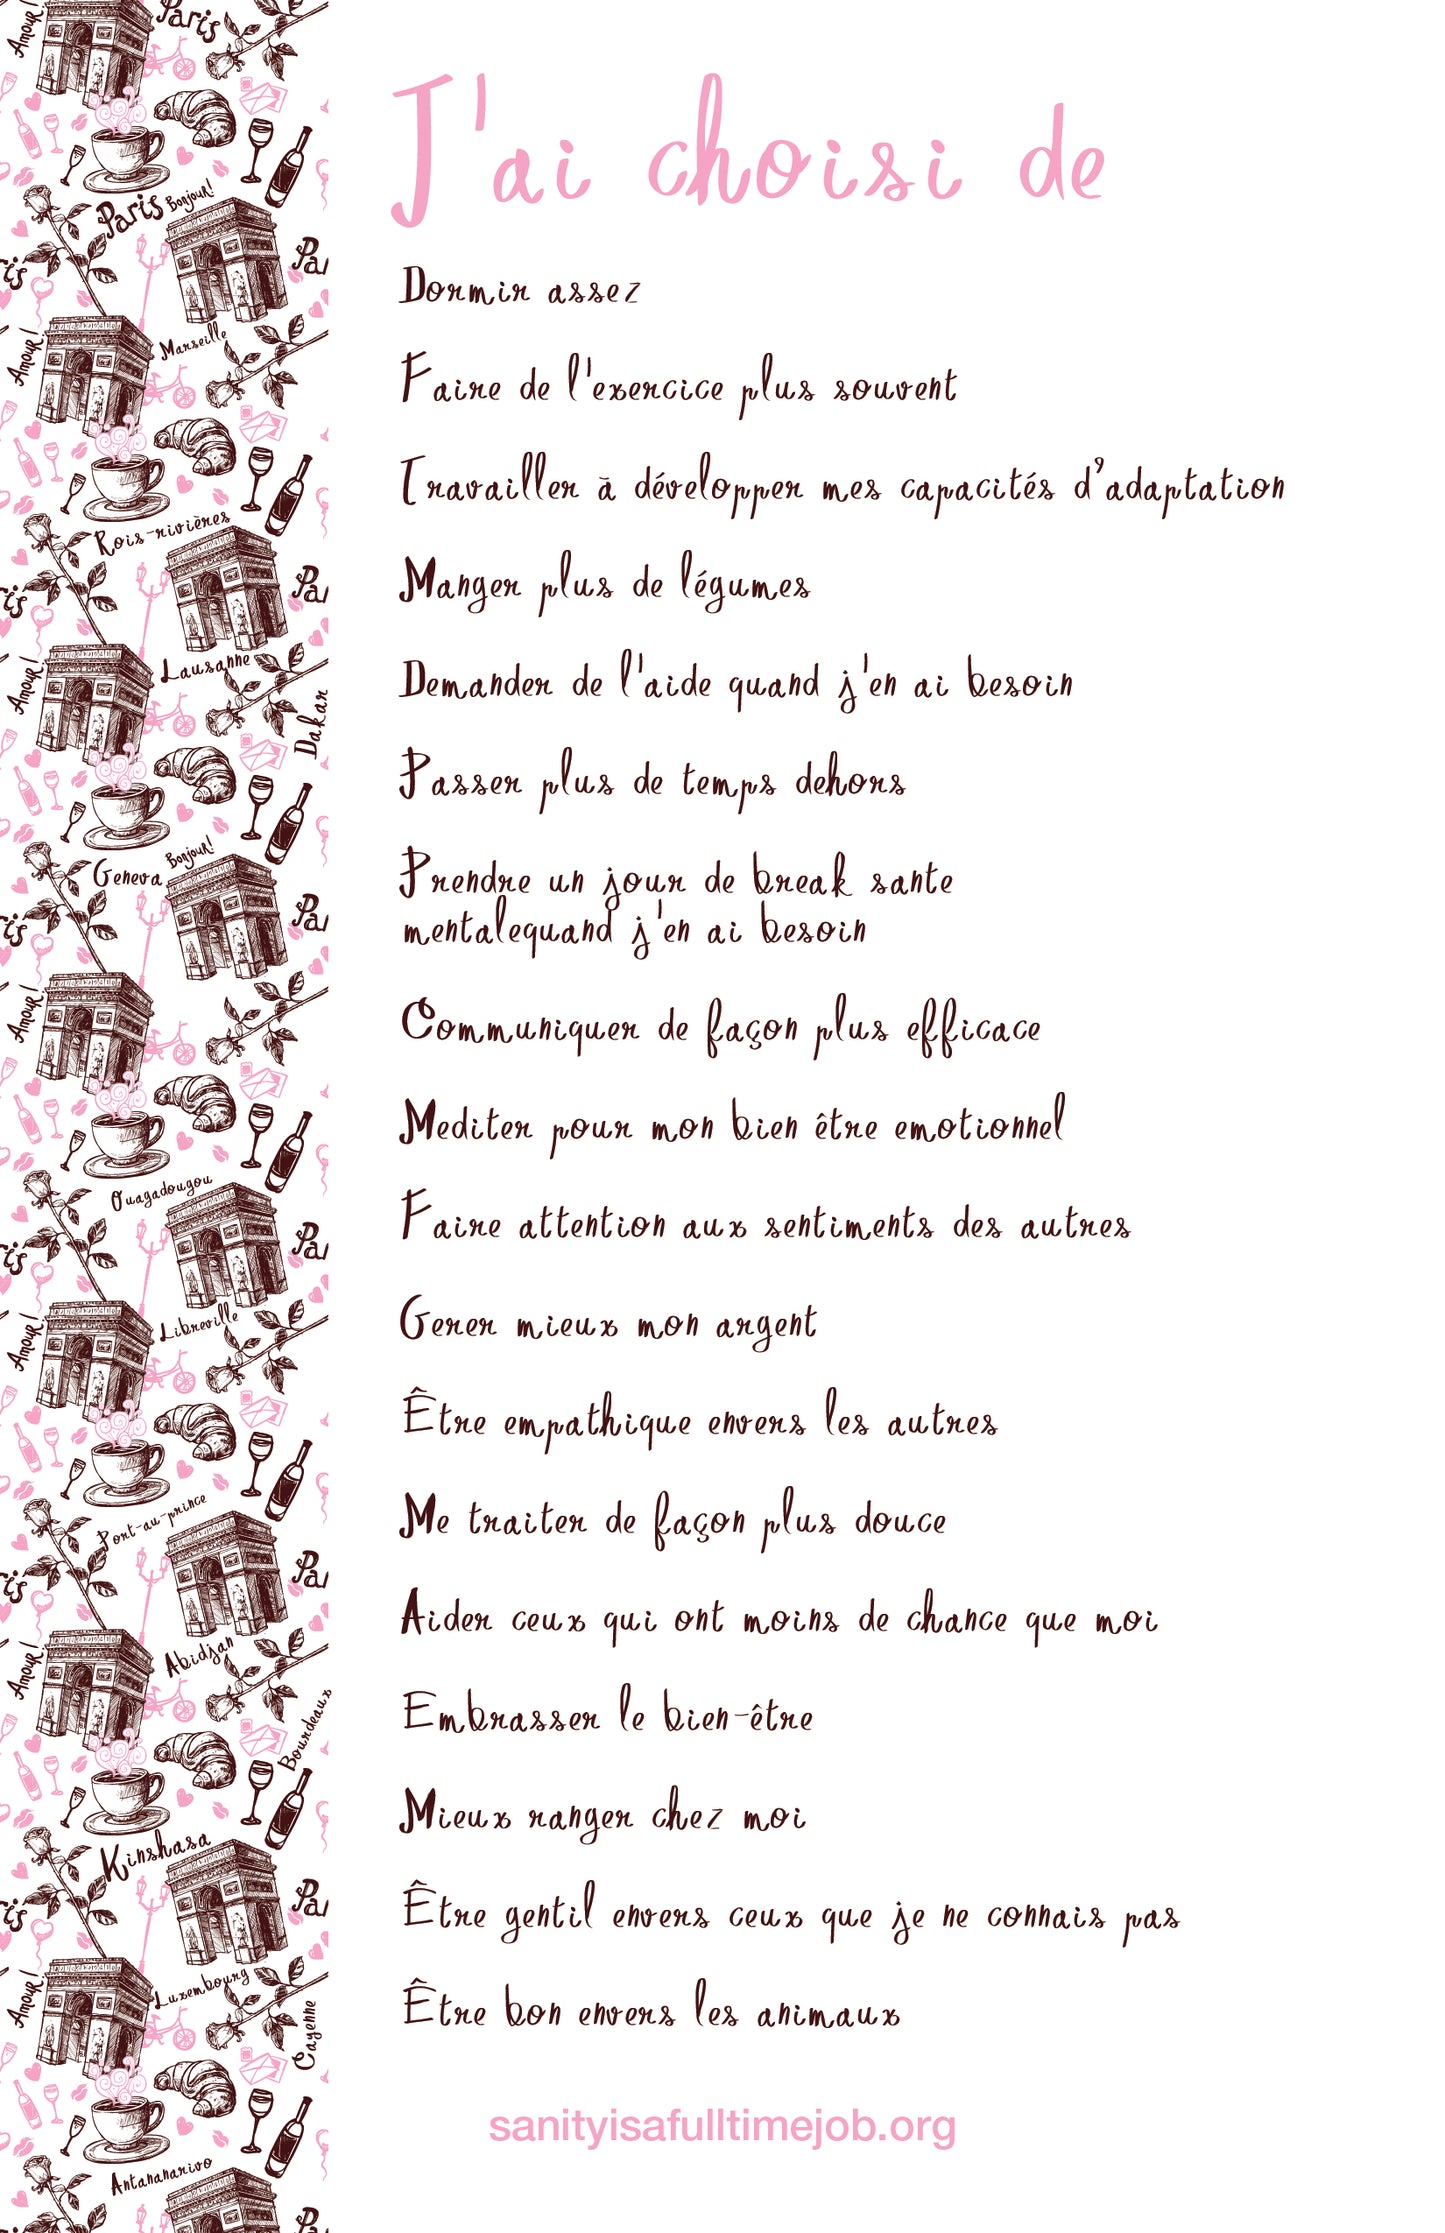 J'ai choisi de
Dormir assez
Faire de l'exercice plus souvent
Travailler à développer mes capacités d'adaptation
Manger plus de légumes
Demander de l'aide quand j'en ai besoin
Passer plus de temps dehors
Prendre un jour de break sante
mentalequand j'en ai besoin
Communiquer de façon plus efficace
Mediter pour mon bien être emotionnel
Faire attention aux sentiments des autres
Gerer mieux mon argent
Être empathique envers les autres
Me traiter de façon plus douce
Aider ceux qui ont moins de chance que moi
Embrasser le bien-être
Mieux ranger chez moi
Être gentil envers ceux que je ne connais pas
Être bon envers les animaux
sanityisafulltimejob.org
Amour!
Paris
Paris
Bonjour!
Amour!
Marseille
Rois-rivières
Amour!
Lausanne
Dakar
Geneva
Bonjour!
Amour!
Ouagadougou
Amour!
Libreville
Port-au-prince
Amour!
Abidjan
Bordeaux
Kinshasa
Amour!
Luxembourg
Cayenne
Antananarivo